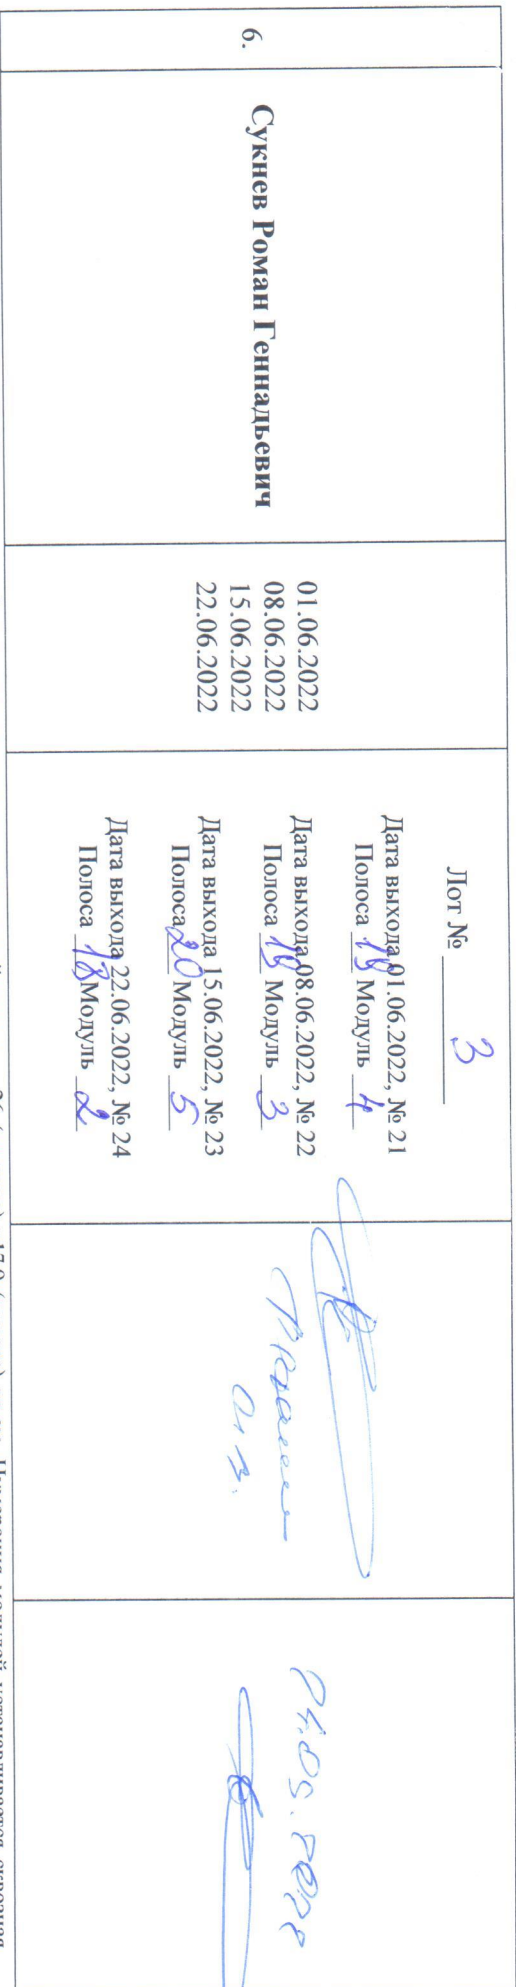 6.
Сукнев Роман Геннадьевич
01.06.2022
08.06.2022
15.06.2022
22.06.2022
Лот № 3
Дата выхода 01.06.2022, № 21
Полоса Модуль 4
Дата выхода 08.06.2022, № 22
Полоса Модуль 3
Дата выхода 15.06.2022, № 23
Полоса 20 Модуль 5
Дата выхода 22.06.2022, № 24
Полоса 18 Модуль 2